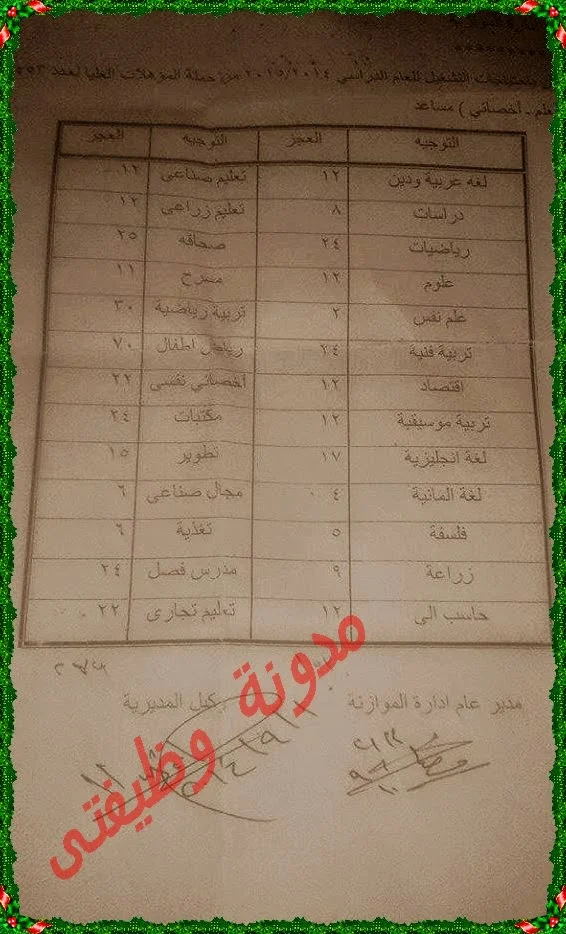 ************
التشغيل للعام الدراسي ٢٠١٥/٢٠١٤ من حملة المؤهلات العليا لعدد
أخصائي ) مساعد
التوجيه العجز التوجيه العجز
لغه عربية ودين ١٢ تعليم صناعى ١٢
دراسات ٨ تعليم زراعى ١٢
رياضيات ٢٤ صحافه ٢٥
علوم ١٢ مسرح ١١
علم نفس ٢ تربية رياضية ٣٠
تربية فنية ٢٤ رياض اطفال ٧٠
اقتصاد ١٢ أخصائي نفسى ٢٢
تربية موسيقية ١٢ مكتبات ٢٤
لغة انجليزية ١٧ تطوير ١٥
لغة المانية ٤ مجال صناعى ٦
فلسفة ٥ تغذية ٦
زراعة ٩ مدرس فصل ٢٤
حاسب الى ١٢ تعليم تجارى ٢٢
مدير عام ادارة الموازنة وكيل المديرية
مدونة وظيفتى